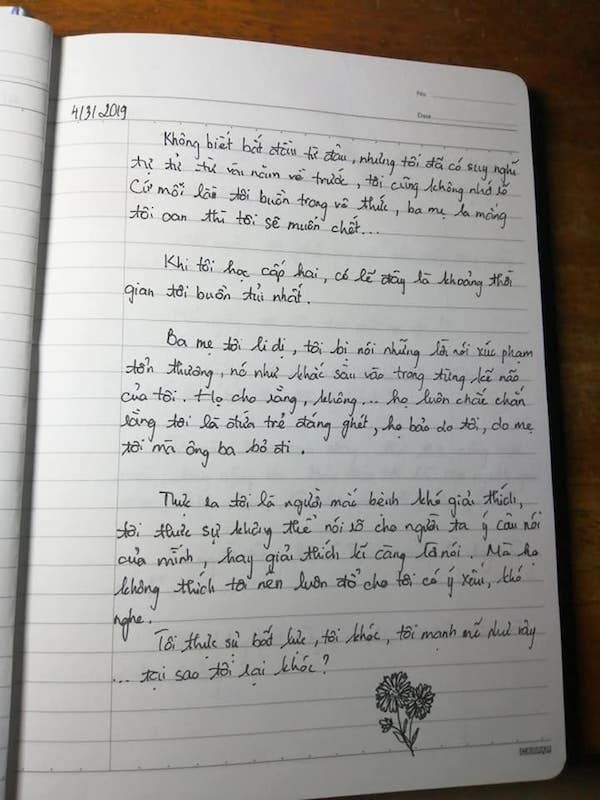 No.
Date
4/3/2019
Không biết bắt đầu từ đâu, nhưng tôi đã có suy nghĩ
tự tử từ vài năm về trước, tôi cũng không nhớ rõ
Cứ mỗi lần tôi buồn trong vô thức, ba mẹ la mắng
tôi oan thì tôi sẽ muốn chết...
Khi tôi học cấp hai, có lẽ đây là khoảng thời
gian tôi buồn tủi nhất.
Ba mẹ tôi li dị, tôi bị nói những lời nói xúc phạm
tổn thương, nó như khắc sâu vào trong từng kẽ não
của tôi. Họ cho rằng, không... họ luôn chắc chắn
rằng tôi là đứa trẻ đáng ghét, họ bảo do tôi, do mẹ
tôi mà ông ba bỏ đi.
Thực ra tôi là người mắc bệnh khó giải thích,
tôi thực sự không thể nói rõ cho người ta ý câu nói
của mình, hay giải thích kĩ càng lời nói. Mà họ
không thích tôi nên luôn đổ cho tôi có ý xấu, khó
nghe.
Tôi thực sự bất lực, tôi khóc, tôi mạnh mẽ như vậy
... tại sao tôi lại khóc?